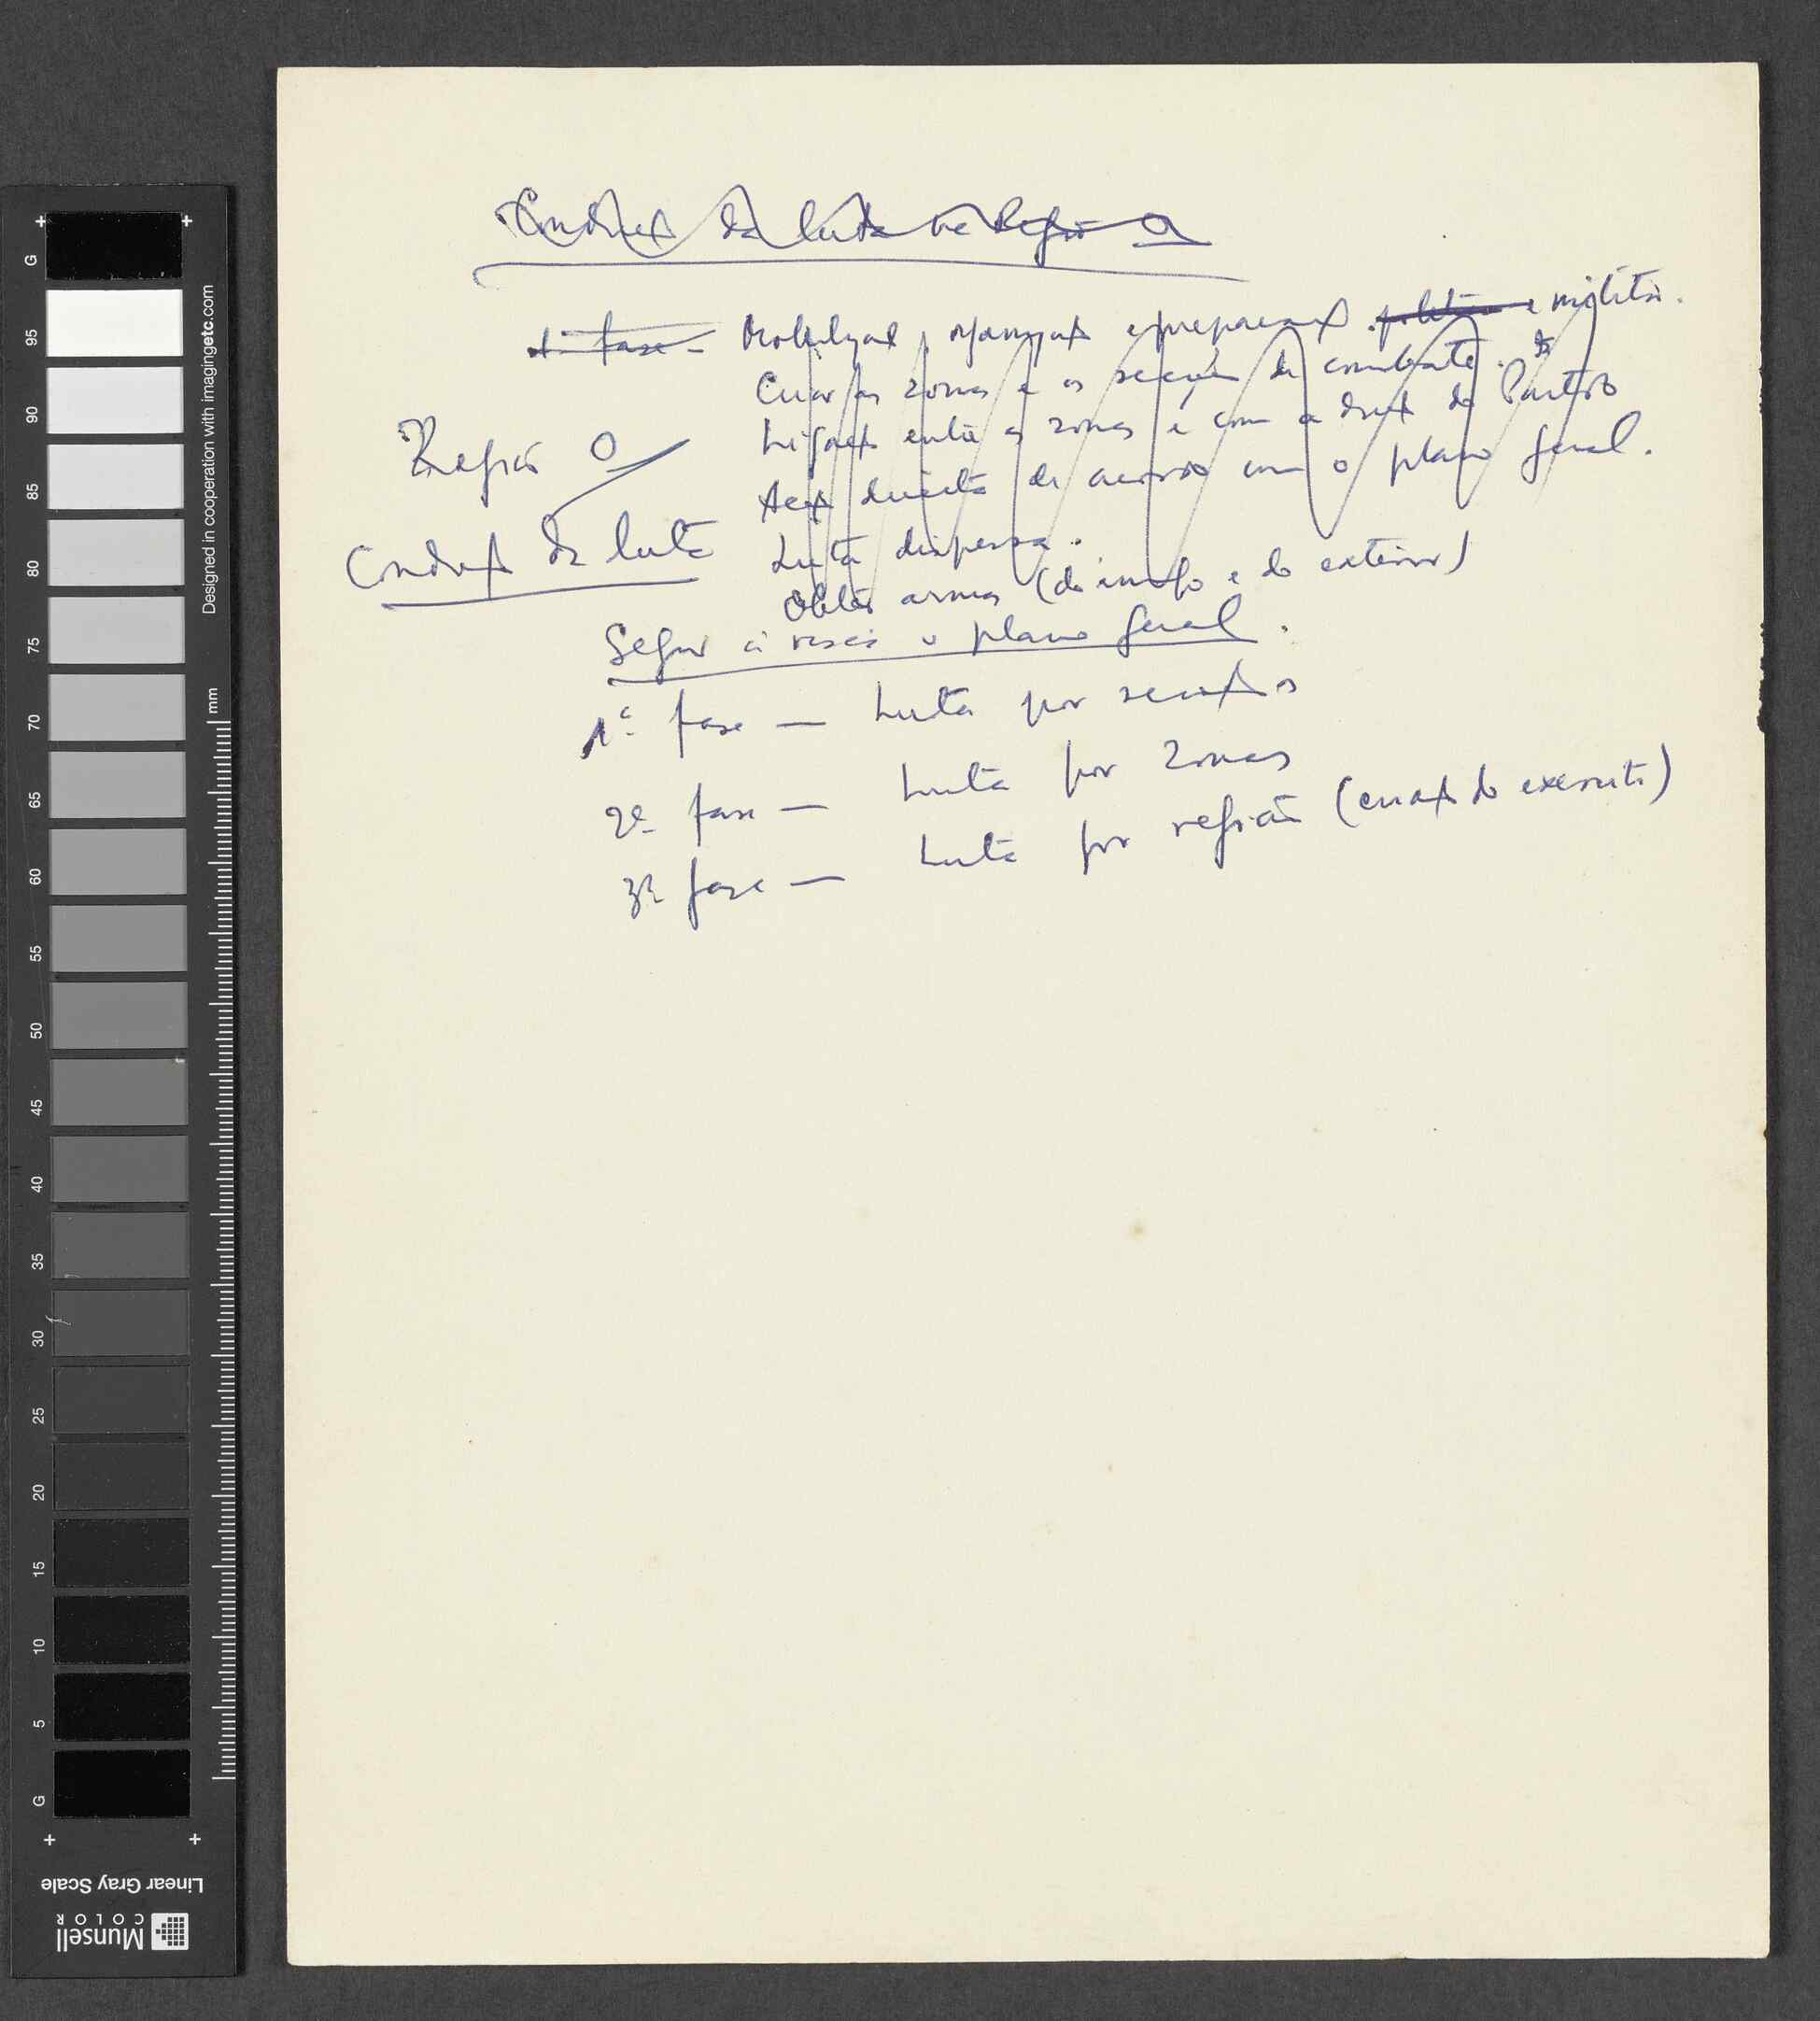 Condução da luta na Região O
1ª fase — Mobilização, organização e preparação política e militar.
Criar as zonas e as secções de combate.
Ligação entre as zonas e com a direcção do Partido
Acção directa de acordo com o plano geral.
Luta dispersa.
Obter armas (do inimigo e do exterior)
Região O
Condução da luta
Seguir à risca o plano geral.
1ª fase — Luta por secções
2ª fase — Luta por zonas
3ª fase — Luta por região (criação do exército)
Designed in cooperation with imagingetc.com
mm
G
95
90
85
80
75
70
65
60
55
50
45
40
35
30
25
20
15
10
5
G
Linear Gray Scale
Munsell
COLOR